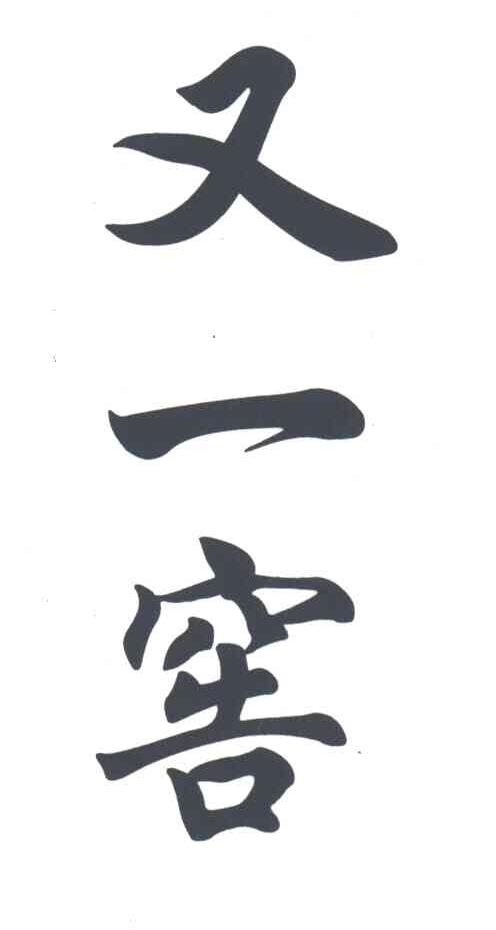 又一窖